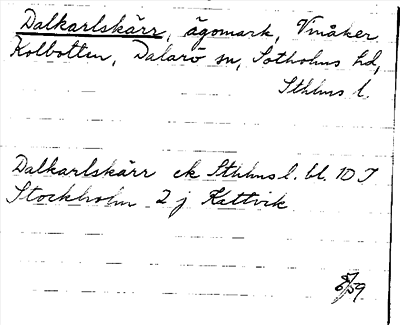 Dalkarlskärr, ägomark, Vinåker
Kolbotten, Dalarö sn, Sotholms hd,
Sthlms l.
Dalkarlskärr ek Sthlms l. bl. 10 I
Stockholm 2 j Kattvik
59.